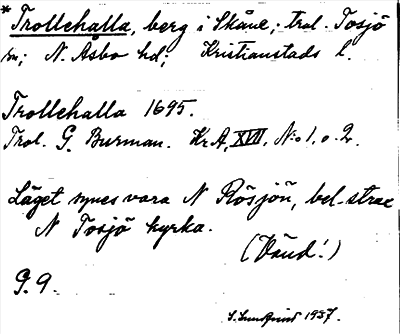 *Trollehalla, berg i Skåne; trol. Tosjö
sn; N. Åsbo hd; Kristianstads l.
Trollehalla 1695.
Trol. G. Burman. Kr A, XVII, No 1, o. 2.
Läget synes vara N Rösjön, bel. strax
N Tosjö kyrka.
(Vänd!)
G. 9.
S. Lundquist 1937.